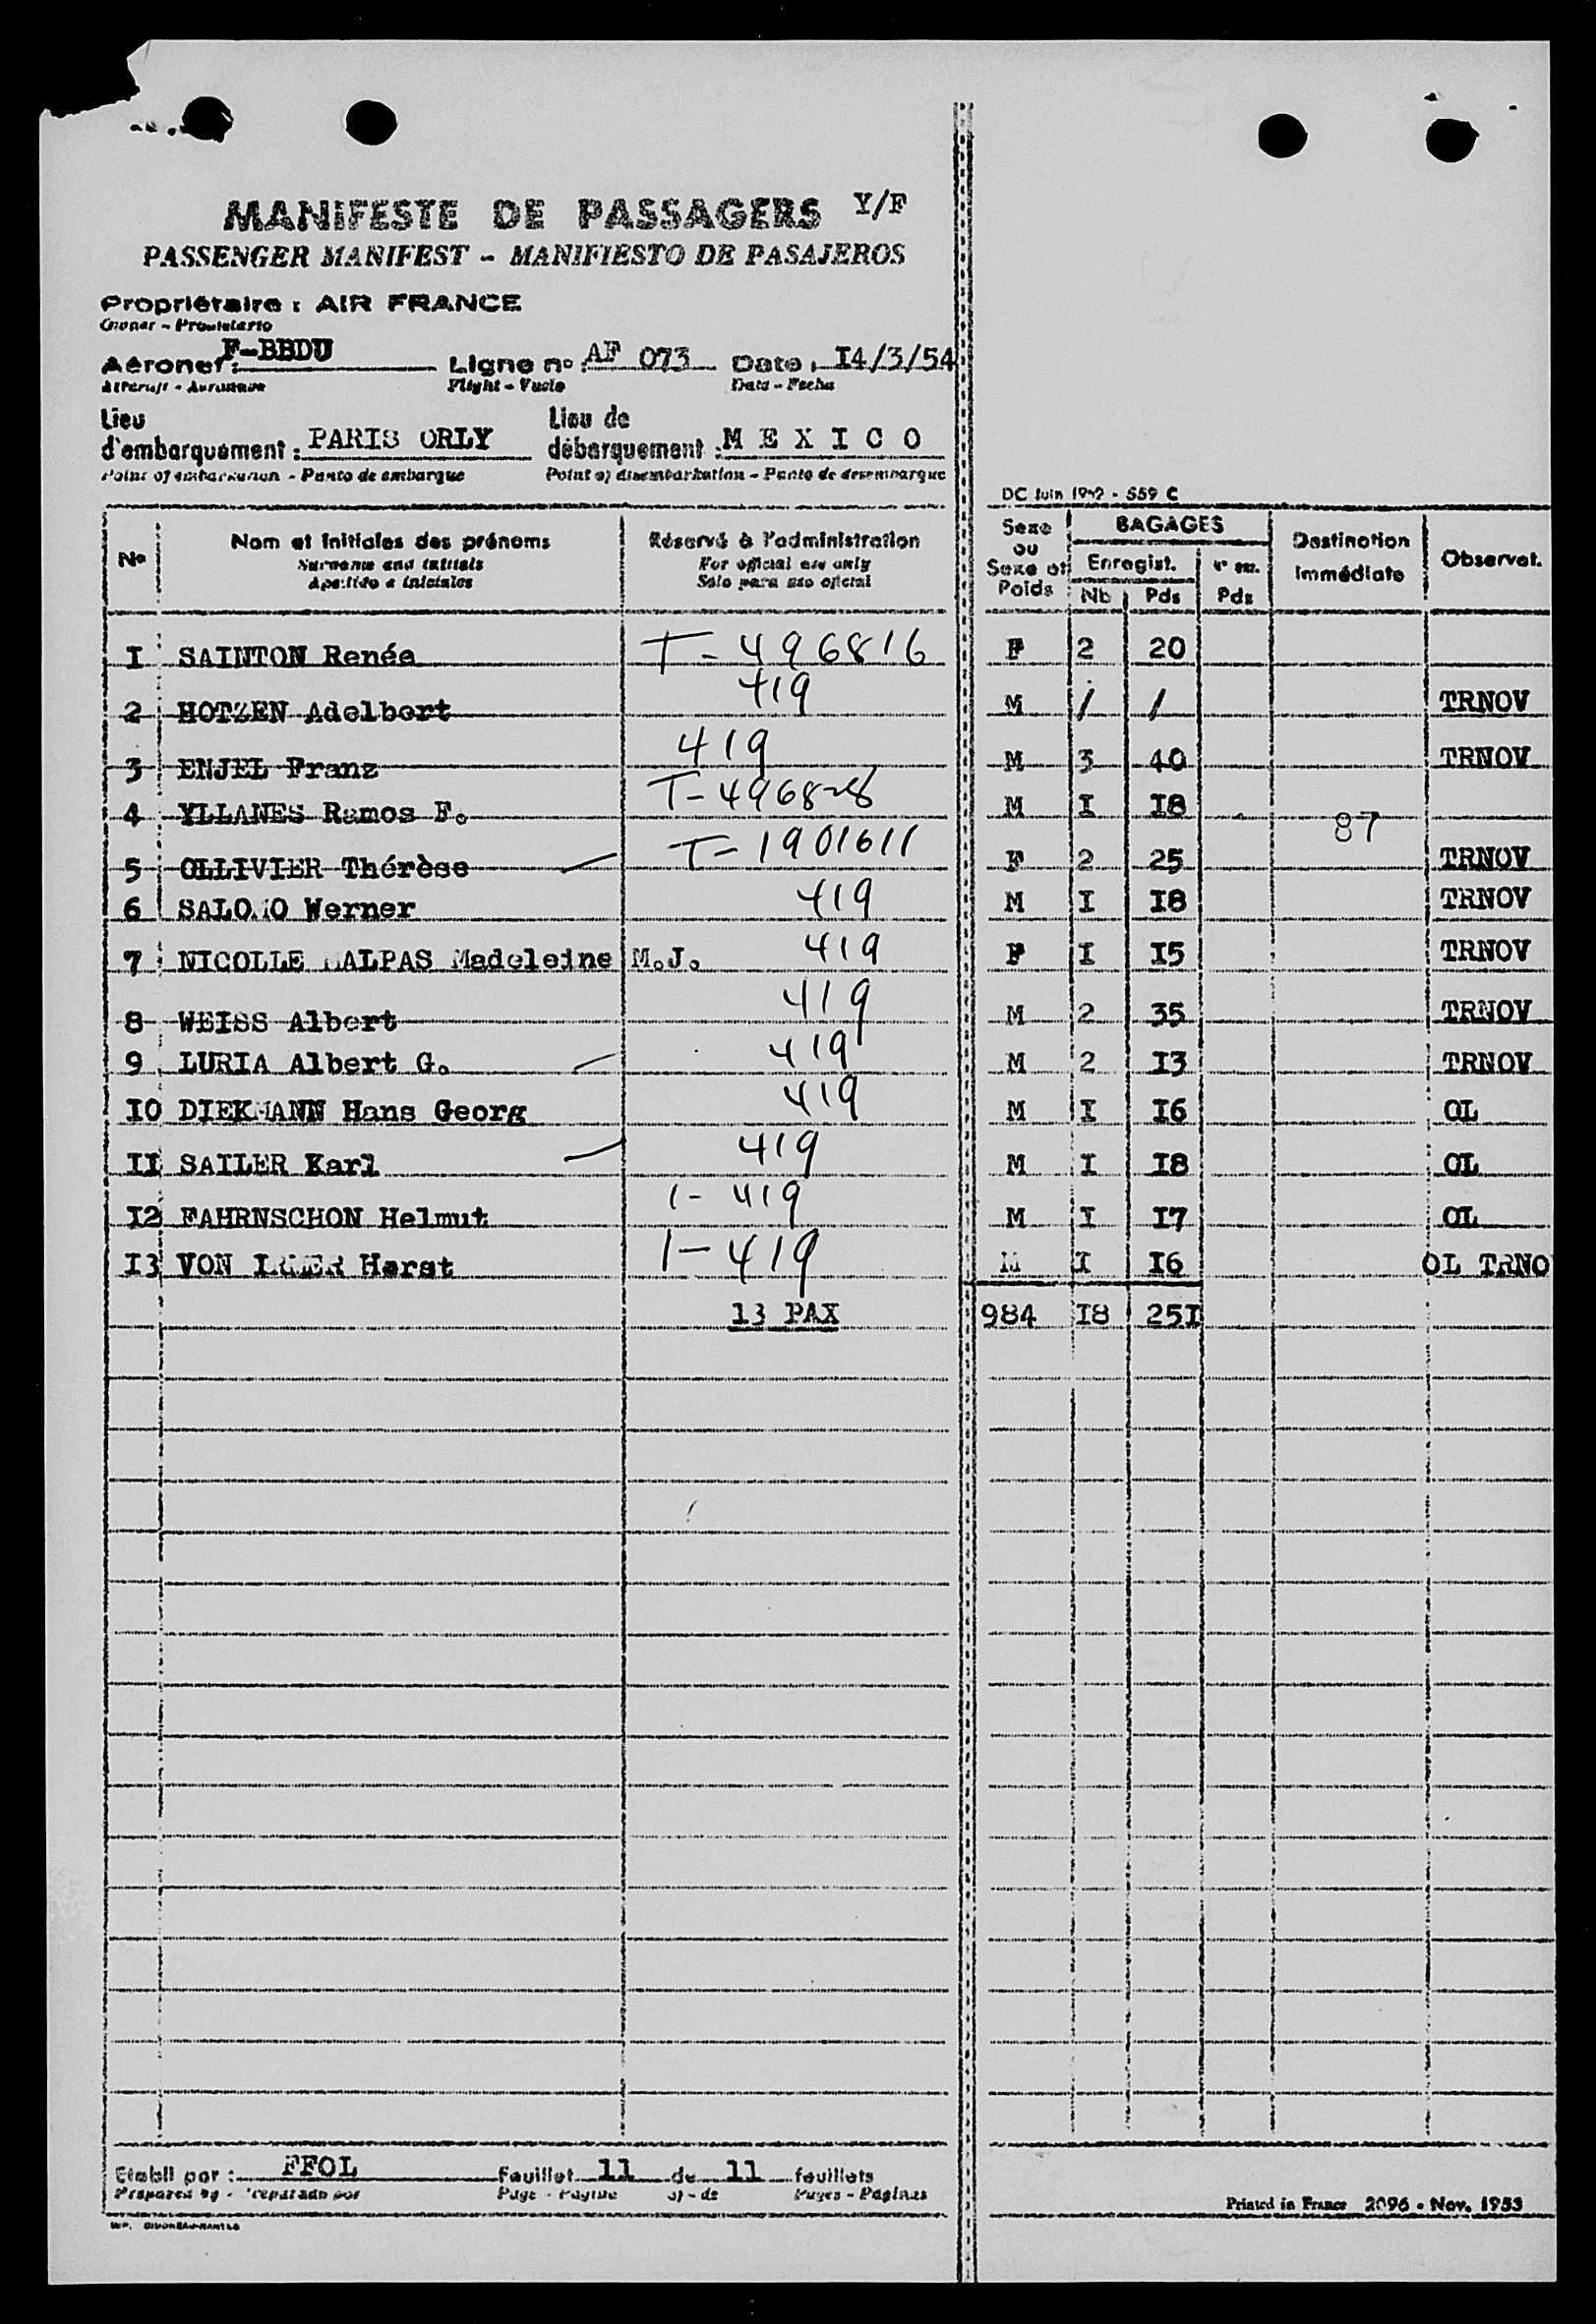 MANIFESTE DE PASSAGERS Y/F
PASSENGER MANIFEST - MANIFIESTO DE PASAJEROS
Propriétaire : AIR FRANCE
Owner - Propietario
Aéronef : F-BBDU Ligne no : AF 073 Date : I4/3/54
Aircraft - Aeronave Flight - Vuelo Date - Fecha
Lieu d'embarquement : PARIS ORLY Lieu de débarquement : M E X I C O
Point of embarkation - Punto de embarque Point of disembarkation - Punto de desembarque
DC Juin 1952 - 559 C
No Nom et initiales des prénoms Réservé à l'administration Sexe ou Sexe et Poids BAGAGES Destination immédiate Observat.
Surname and initials For official use only Enregist.
Apellido e iniciales Sólo para uso oficial Nb Pds Pds
I SAINTON Renée T-496816 F 2 20
2 HOTZEN Adelbert 419 M / / TRNOV
3 ENJEL Franz 419 M 3 40 TRNOV
4 YLLANES Ramos F. T-496828 M I I8 87
5 OLLIVIER Thérèse T-1901611 F 2 25 TRNOV
6 SALOMO Werner 419 M I I8 TRNOV
7 NICOLLE MALPAS Madeleine M.J. 419 F I I5 TRNOV
8 WEISS Albert 419 M 2 35 TRNOV
9 LURIA Albert G. 419 M 2 I3 TRNOV
IO DIEKMANN Hans Georg 419 M I I6 OL
II SAILER Karl 419 M I I8 OL
I2 FAHRNSCHON Helmut 1-419 M I I7 OL
I3 VON IRMER Horst 1-419 M I I6 OL TRNO
13 PAX 984 I8 25I
Etabli par : FFOL Feuillet 11 de 11 feuillets
Prepared by - Preparado por Page - Página of - de Pages - Páginas
Printed in France 2096 - Nov. 1953